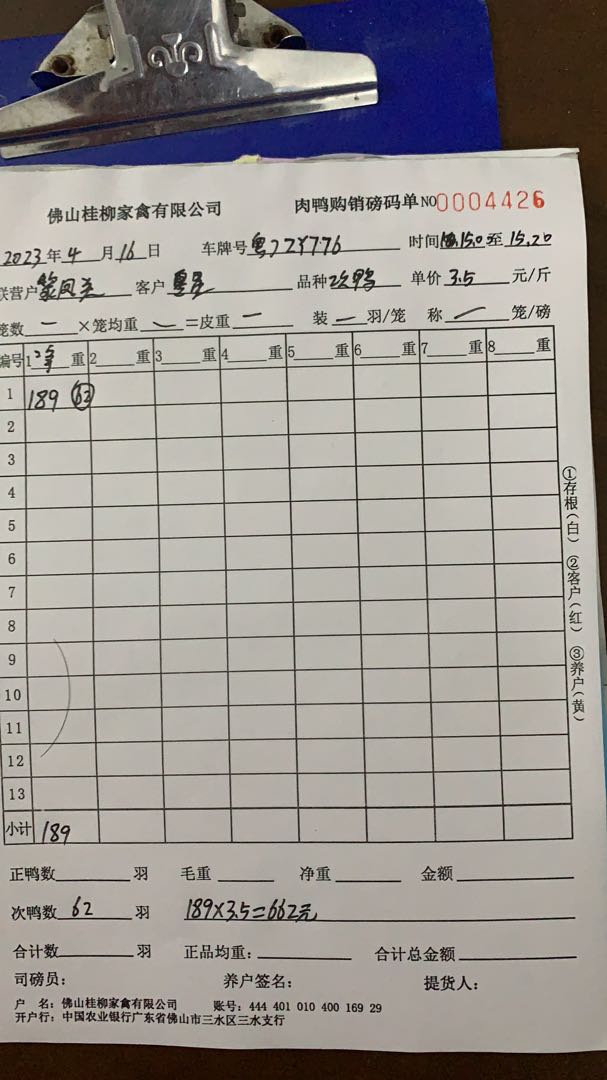 佛山桂柳家禽有限公司 肉鸭购销磅码单 NO 0004426
2023年4月16日 车牌号 时间 15.0 至 15.20
联营户 客户 品种 次鸭 单价 3.5 元/斤
笼数 一 ×笼均重 =皮重 一 装 一 羽/笼 称 一 笼/磅
编号 1 重 2 重 3 重 4 重 5 重 6 重 7 重 8 重
1 189 62
2
3
4
5
6
7
8
9
10
11
12
13
小计 189
正鸭数 羽 毛重 净重 金额
次鸭数 62 羽 189×3.5=662元
合计数 羽 正品均重: 合计总金额
司磅员: 养户签名: 提货人:
户 名: 佛山桂柳家禽有限公司 账号: 444 401 010 400 169 29
开户行: 中国农业银行广东省佛山市三水区三水支行
①存根(白) ②客户(红) ③养户(黄)